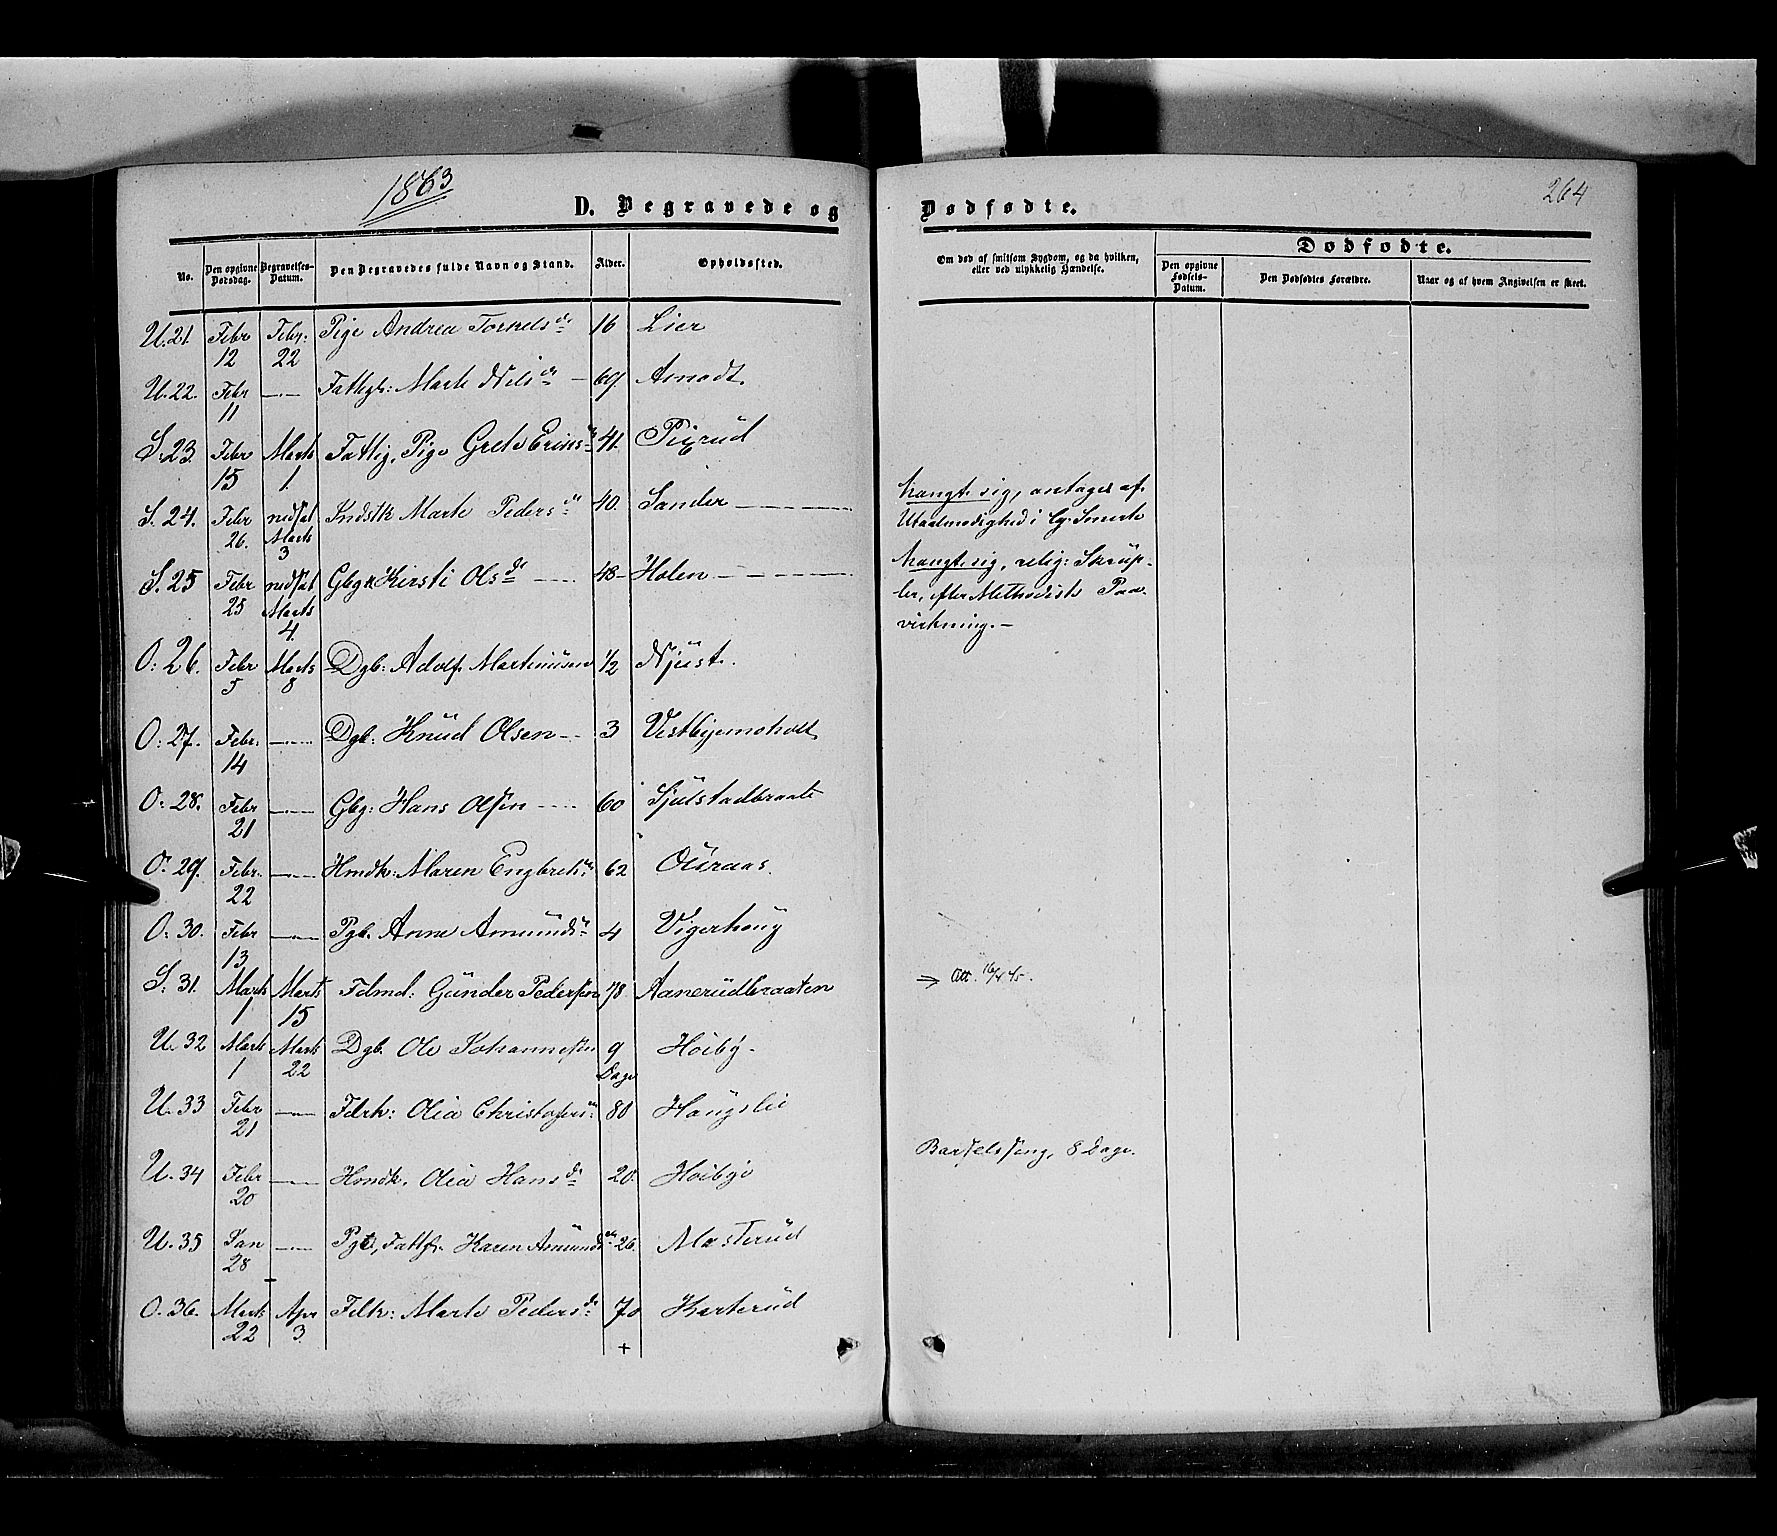 1863
264
D. Begravede og Dødfødte.
Dødfødte.
No.
Den opgivne Dødsdag.
Begravelses-Datum.
Den Begravedes fulde Navn og Stand.
Alder.
Opholdssted.
Om død af smitsom Sygdom, og da hvilken, eller ved ulykkelig Hændelse.
Den opgivne Fødsels-Datum.
Den Dødfødtes Forældre.
Naar og af hvem Angivelsen er skeet.
U. 21. Febr 12 Febr: 22 Pige Andrea Torkelsdr 16 Lier
U. 22. Febr 11 —..— Marte Nilsdr — 69
S. 23. Febr 15 Marts 1. Fattig, Pige Grete 41. Pigrud
S. 24. Febr 26. nedsat Marts 3 Indstk Marte Pedersdr 40. Sander — — — — hængt sig, antages af
Utaalmodighed i Smerte
S. 25 Febr 25 nedsat Marts 4. Kirsti Olsdr ---- 48 — Holen — — — — hængt sig, relig: Skrup-
ler, efter Methodisti Paa-
virkning. —
O: 26. Febr 5 Marts 8 Dgb: Adolf Martinusen 1/2 Njust.
O: 27. Febr. 14 —..— Dgb: Knud Olsen -.- 3
O: 28. Febr 21 —..— Gbg: Hans Olsen ---- 60 Sjulstadbraate
O: 29. Febr. 22 —..— Maren Engebretsdr 62 Ouraas.
O: 30. Febr 13 —..— Pgb. Anne Amundsdr 4 Vigerhoug
S. 31. Marts 1 Marts 15 Fdmd: Gunder Pedersen 78 Aanerudbraaten → Att. 16/4 45.
U. 32 Marts 1 Marts 22 Dgb. Ole Johannesen 9 Dage Hoiby.
U. 33 Febr 21 —..— Fdrk: Olia Christofersdr 80 Haugslie
U. 34 Febr 20 —..— Hmdk. Olia Hansdr 20. Hoibye Barselsseng, 8 Dage.
U. 35 Jan 28 —..— Karen Amundsdr 26. Masterud
O. 36. Marts 22 Apr 3. Marte Pedersdr 70 Karterud
+